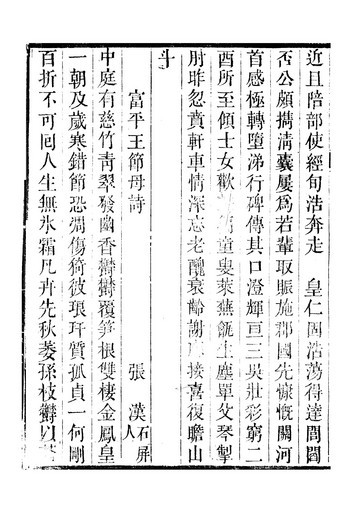 近且陪部使經旬浩奔走　皇仁固浩蕩得達閭閻
否公頗攜清囊屢爲若輩取賑施郡國先慷慨關河
首感極轉墮涕行碑傳其口澄輝亘三吳壯彩窮二
酉所至傾士女歡 童叟萊蕪甑生塵單父琴掣
肘昨忽賁軒車情深忘老醜衰齡謝 接喜復瞻山
斗
富平王節母詩　張漢石屏人
中庭有慈竹靑翠發幽香鬱鬱覆笋根雙棲金鳳皇
一朝及歲寒錯節恐凋傷猗彼琅玕質孤貞一何剛
百折不可囘人生無氷霜凡卉先秋萎孫枝鬱以